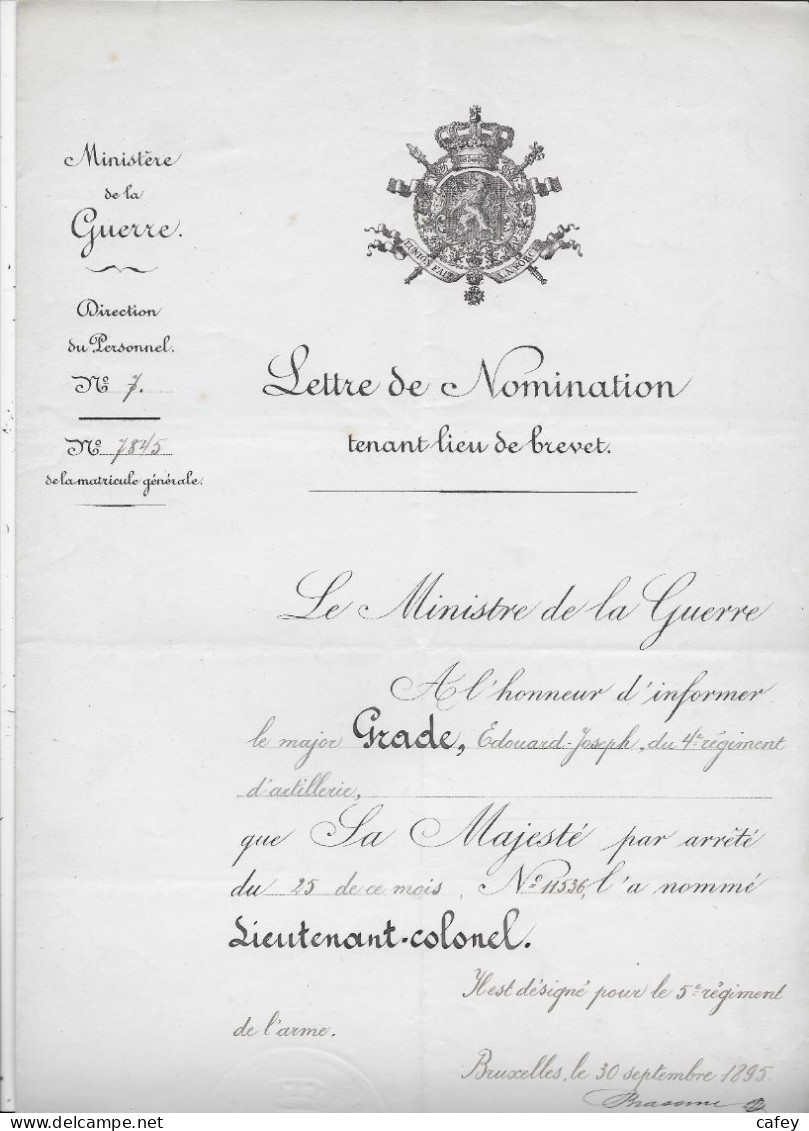 Ministère
de la
Guerre.
Direction
du Personnel.
Nº 7.
Nº 7845
de la matricule générale.
L'UNION FAIT LA FORCE
Lettre de Nomination
tenant lieu de brevet.
Le Ministre de la Guerre
A l'honneur d'informer
le major Grade, Edouard-Joseph, du 4e régiment
d'artillerie,
que Sa Majesté par arrêté
du 25 de ce mois, Nº 11536, l'a nommé
Lieutenant-colonel.
Il est désigné pour le 5e régiment
de l'arme.
Bruxelles, le 30 septembre 1895.
Brassine
cafey